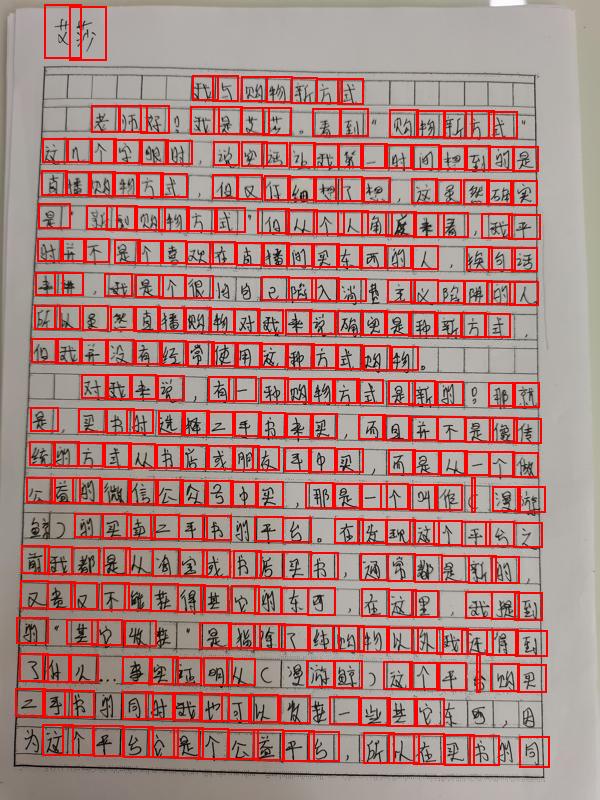 艾莎
我与购物新方式
老师好？我是艾莎。看到"购物新方式"
这几个字眼时，说实话让我第一时间想到的是
直播购物方式，但又仔细想了想，这虽然确实
是"新的购物方式"但从个人角度来看，我平
时并不是个喜欢在直播间买东西的人，换句话
来讲，我是个很怕自己陷入消费主义陷阱的人。
所以虽然直播购物对我来说确实是种新方式，
但我并没有经常使用这种方式购物。
对我来说，有一种购物方式是新的？那就
是，买书时选择二手书来买，而且并不是像传
统的方式从书店或朋友手中买，而是从一个做
公益的微信公众号中买，那是一个叫作（漫游
鲸）的买卖二手书的平台。在发现这个平台之
前我都是从淘宝或书店买书，通常都是新的，
又贵又不能获得其它的东西，在这里，我提到
的"其它收获"是指除了纯购物以外我还得到
了什么…事实证明从（漫游鲸）这个平台购买
二手书的同时我也可以收获一些其它东西，因
为这个平台公是个公益平台，所以在买书的同